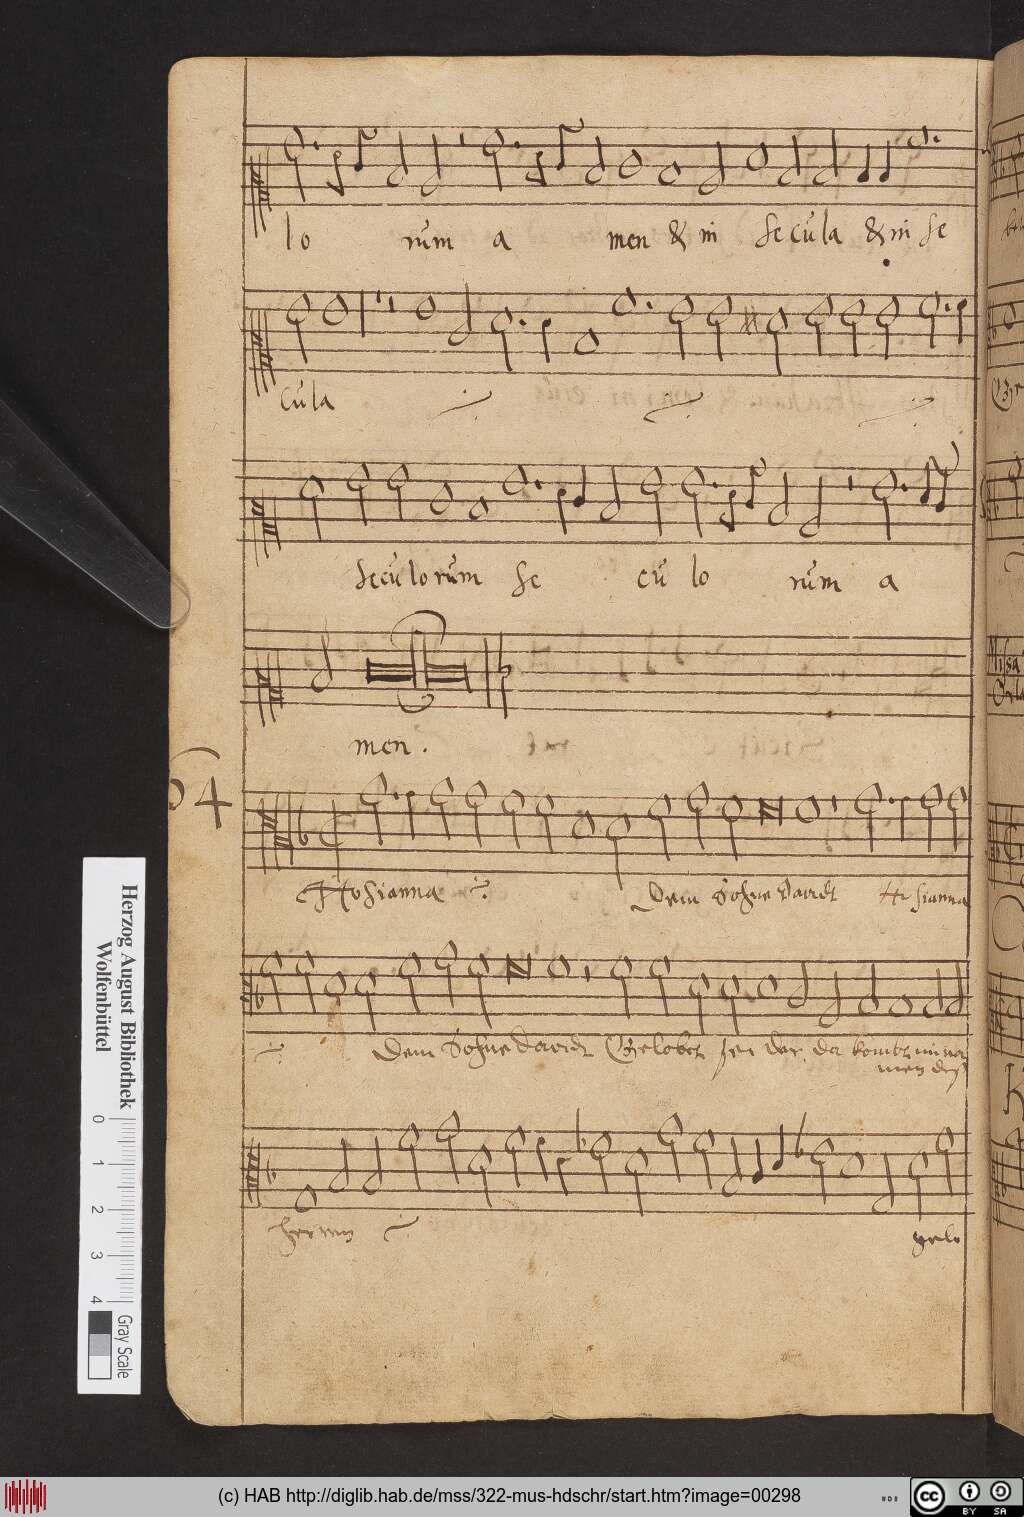 lo rum a men & in secula & in se
cula
seculorum se cu lo rum a
men.
54
Hosianna Dem Sohne Davidt Hosianna
Dem Sohne Davidt Gelobet sey der der kombt im na
men deß
herren gelo
Herzog August Bibliothek
Wolfenbüttel
0 1 2 3 4
Gray Scale
(c) HAB http://diglib.hab.de/mss/322-mus-hdschr/start.htm?image=00298
cc BY SA